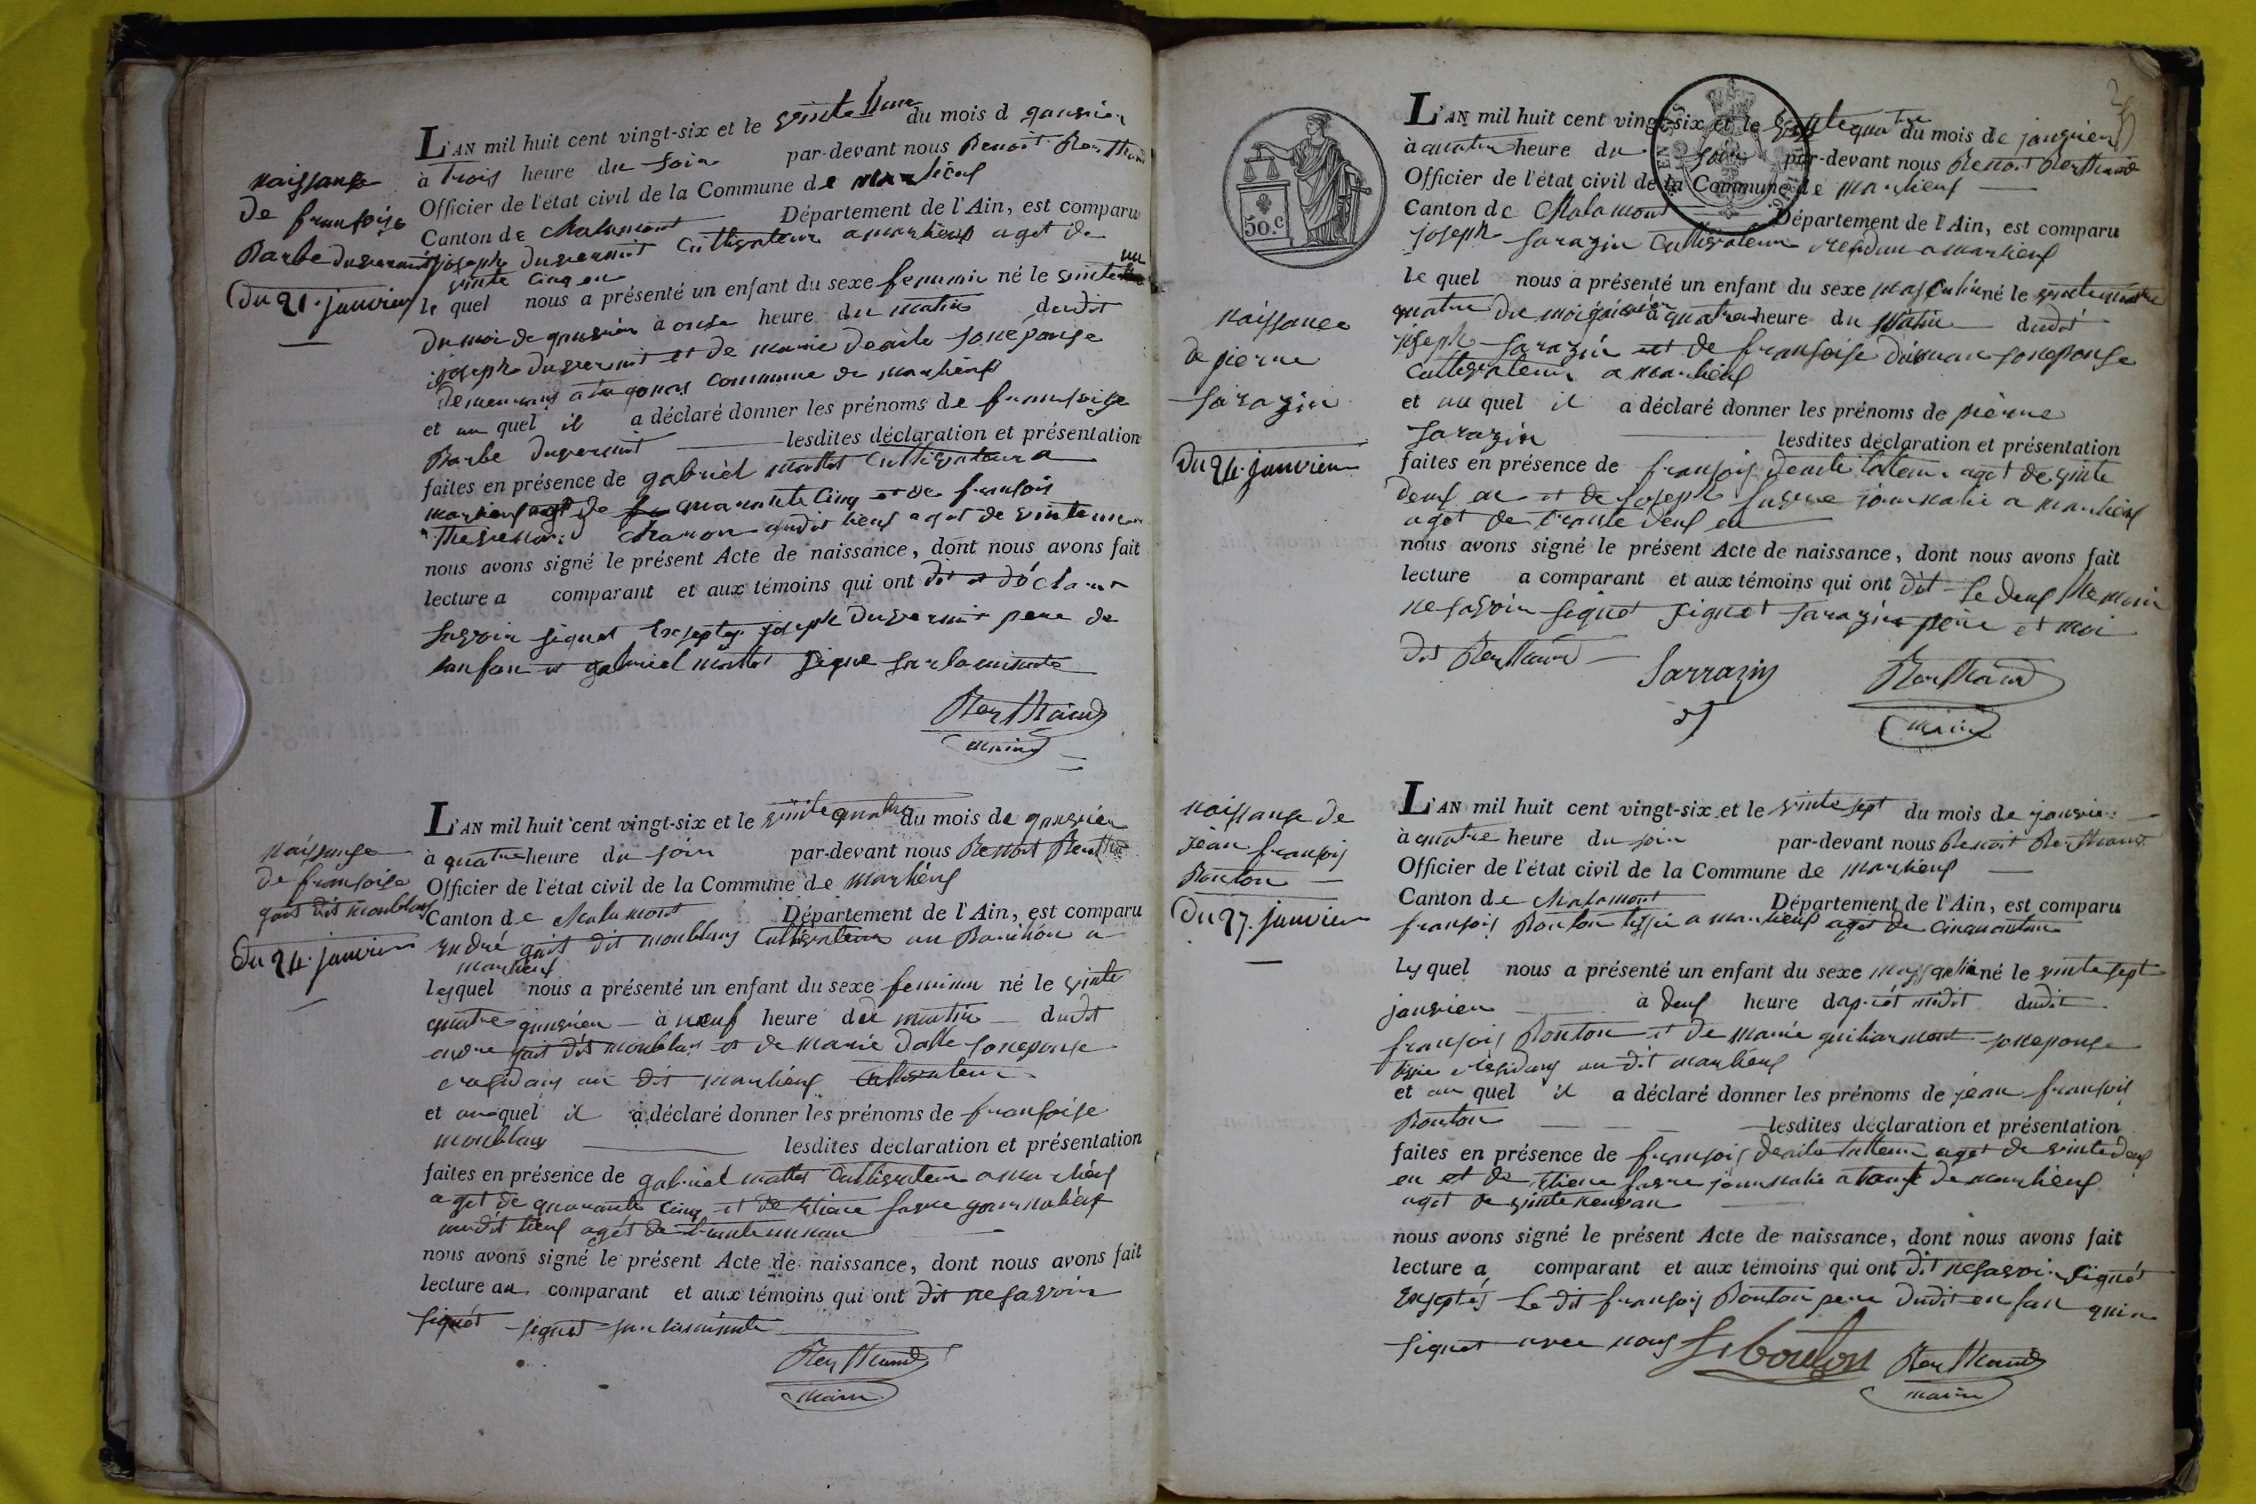 naissanse
de fransoise
Barbe duvernoit
Du 21. janvier
L'AN mil huit cent vingt-six et le vinte hun du mois d janvier
à trois heure du soir par-devant nous Benoit Berthaud
Officier de l'état civil de la Commune de marlieus
Canton de Chalamont Département de l'Ain, est comparu
joseph duvernoit Cultivateur a marlieus aget de
vinte cinq en
le quel nous a présenté un enfant du sexe feminin né le vinte un
du moi de janvier à onse heure du matin dudit
joseph duvernoit et de marie son eponse
commune de marlieus
et au quel il a déclaré donner les prénoms de fransoise
Barbe duvernoit lesdites déclaration et présentation
faites en présence de gabriel mottet Cultivateur a
marlieus aget de quarante cinq et de fransois
Charon audit lieus aget de vinte
nous avons signé le présent Acte de naissance, dont nous avons fait
lecture a comparant et aux témoins qui ont dit et déclaret
savoir signet exseptes joseph duvernoit pere de
lanfan et gabriel mottet signe sur la minute
Berthaud
maire
naissanse
de fransoise
gait dit monblans
Du 24. janvier
L'AN mil huit cent vingt-six et le vinte quatre du mois de janvier
à quatre heure du soir par-devant nous Benoit Berthaud
Officier de l'état civil de la Commune de marlieus
Canton de Chalamont Département de l'Ain, est comparu
andré gait dit monblans Cultivateur au a
marlieus
lesquel nous a présenté un enfant du sexe feminin né le vinte
quatre janvier à neuf heure du matin dudit
andre gait dit monblans et de marie dalle son eponse
residans au dit marlieus Cultivateur
et auquel il a déclaré donner les prénoms de fransoise
monblans lesdites déclaration et présentation
faites en présence de gabriel mottet Cultivateur a marlieus
aget de quarante cinq et de etiene favre journalier
audit lieus aget de
nous avons signé le présent Acte de naissance, dont nous avons fait
lecture au comparant et aux témoins qui ont dit ne savoir
signét signet sur la minute
Berthaud
maire
50.c
naissance
de pierre
sarazin
Du 24. janvier
L'AN mil huit cent vingt-six et le vinte quatre du mois de janvier
à quatre heure du soir par-devant nous Benoit Berthaud
Officier de l'état civil de la Commune de marlieus
Canton de Chalamont Département de l'Ain, est comparu
joseph sarazin Cultivateur residan a marlieus
le quel nous a présenté un enfant du sexe masculin né le vinte
quatre du moi janvier a quatre heure du matin dudit
joseph sarazin et de fransoise son eponse
Cultivateur a marlieus
et au quel il a déclaré donner les prénoms de pierre
sarazin lesdites déclaration et présentation
faites en présence de fransois aget de vinte
deus an et de joseph favre journalie a marlieus
aget de trante deus en
nous avons signé le présent Acte de naissance, dont nous avons fait
lecture a comparant et aux témoins qui ont dit le deus themoin
ne savoir signet signet sarazin pere et moi
dit Berthaud
Sarrazin
Berthaud
maire
naissanse de
jean fransois
Bouton
Du 27. janvier
L'AN mil huit cent vingt-six et le vinte sept du mois de janvier
à quatre heure du soir par-devant nous Benoit Berthaud
Officier de l'état civil de la Commune de marlieus
Canton de Chalamont Département de l'Ain, est comparu
fransois Bouton tissie a marlieus aget de cinquante
lesquel nous a présenté un enfant du sexe masqulin né le vinte sept
janvier à deus heure dapret midit dudit
fransois Bouton et de marie guiliarmont son eponse
tissie residans au dit marlieus
et au quel il a déclaré donner les prénoms de jean fransois
Bouton lesdites déclaration et présentation
faites en présence de fransois aget de vinte deus
en et de etiene favre journalie de marlieus
aget de
nous avons signé le présent Acte de naissance, dont nous avons fait
lecture a comparant et aux témoins qui ont dit ne savoir signét
exseptes le dit fransois Bouton pere dudit enfan qui a
signet avec nous
Bouton
Berthaud
maire